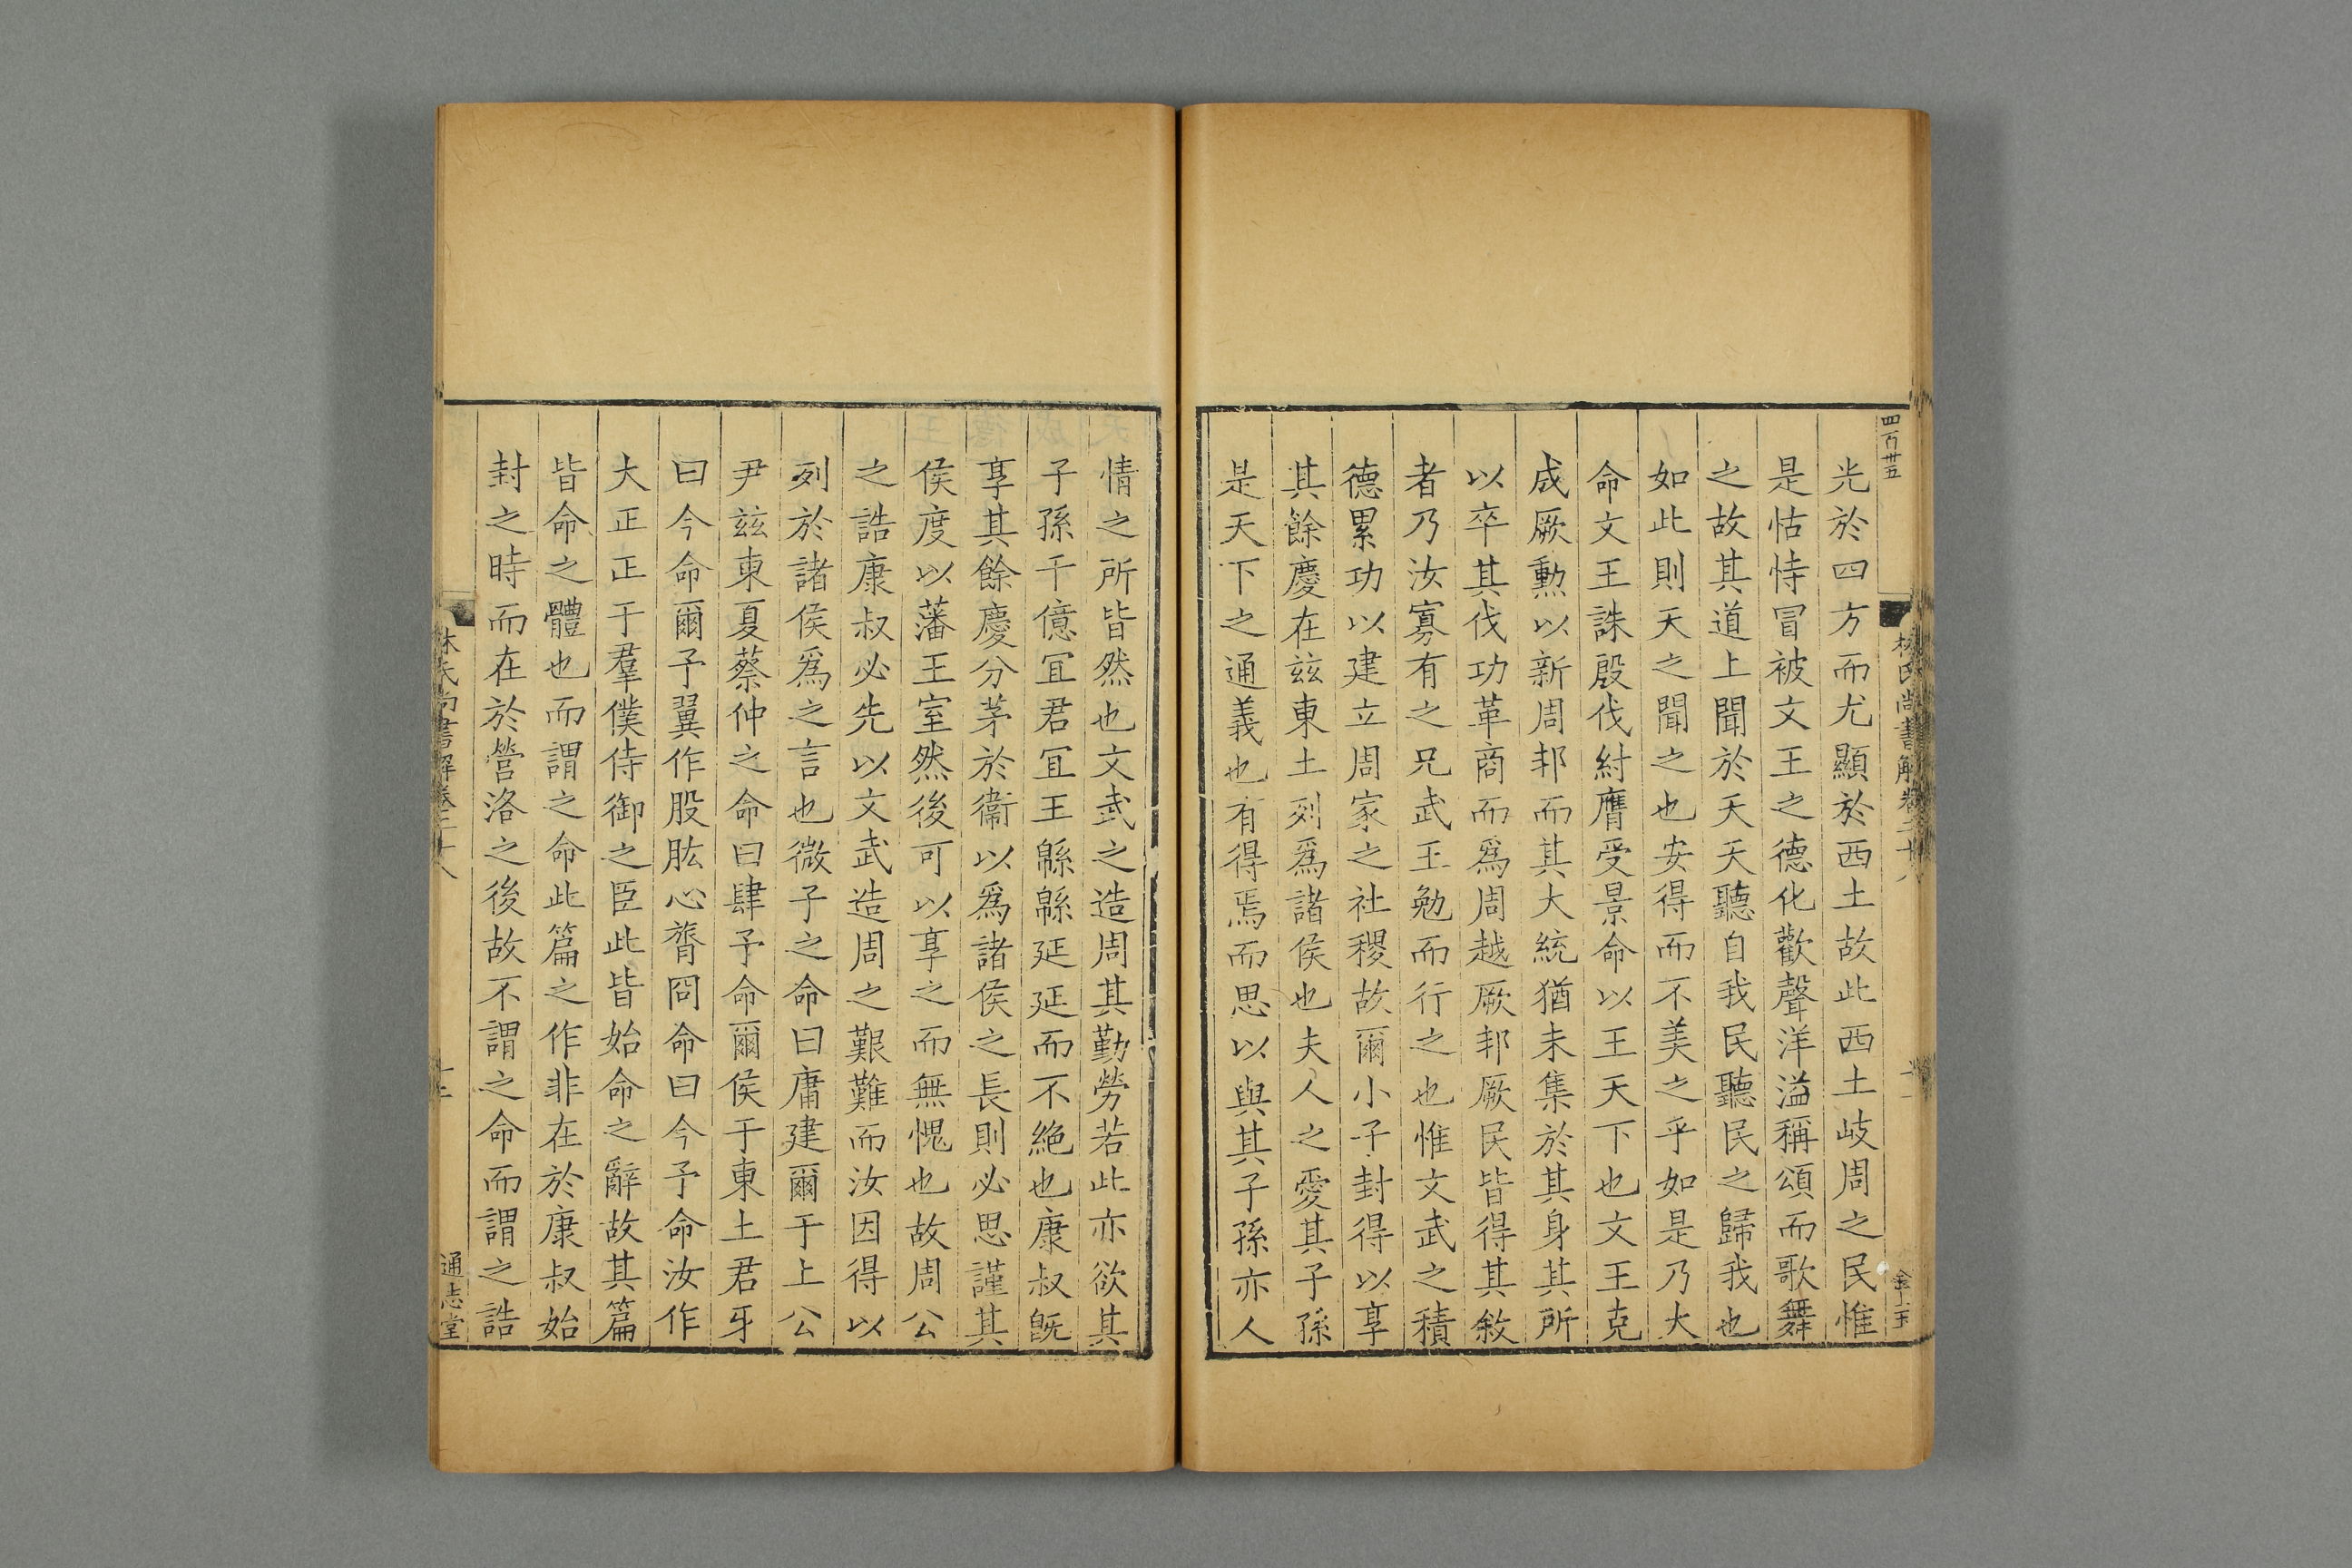 四百卅五
光於四方而尤顯於西土故此西土岐周之民惟
是怙恃冒被文王之德化歡聲洋溢稱頌而歌舞
之故其道上聞於天天聽自我民聽民之歸我也
如此則天之聞之也安得而不美之乎如是乃大
命文王誅殷伐紂膺受景命以王天下也文王克
成厥勲以新周邦而其大統猶未集於其身其所
以卒其伐功革商而爲周越厥邦厥民皆得其敘
者乃汝寡有之兄武王勉而行之也惟文武之積
德累功以建立周家之社稷故爾小子封得以享
其餘慶在兹東土列爲諸侯也夫人之愛其子孫
是天下之通義也有得焉而思以與其子孫亦人
情之所皆然也文武之造周其勤勞若此亦欲其
子孫千億宜君宜王緜緜延延而不絶也康叔旣
享其餘慶分茅於衞以爲諸侯之長則必思謹其
侯度以藩王室然後可以享之而無愧也故周公
之誥康叔必先以文武造周之艱難而汝因得以
列於諸侯爲之言也微子之命曰庸建爾于上公
尹兹東夏蔡仲之命曰肆予命爾侯于東土君牙
曰今命爾予翼作股肱心膂冏命曰今予命汝作
大正正于羣僕侍御之臣此皆始命之辭故其篇
皆命之體也而謂之命此篇之作非在於康叔始
封之時而在於營洛之後故不謂之命而謂之誥
林氏尚書解卷二十八
通志堂